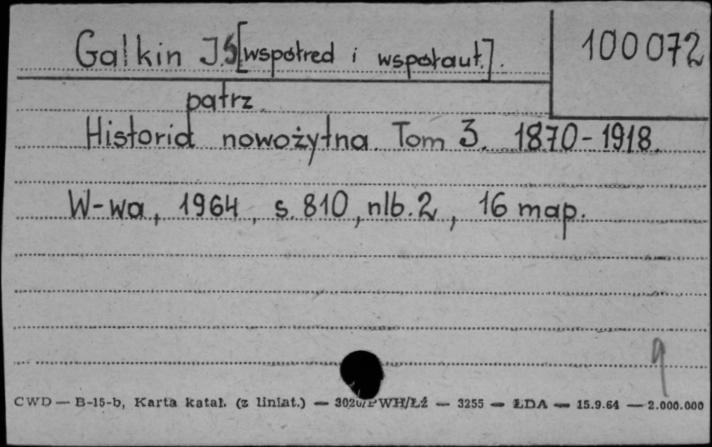 Galkin J.S[współred i współaut.].
100072
patrz
Historia nowożytna. Tom 3. 1870-1918.
W-wa, 1964, s. 810, nlb. 2, 16 map.
9
CWD — B-15-b, Karta katal. (z liniat.) — 3020/PWH/Łź — 3255 — ŁDA — 15.9.64 — 2.000.000